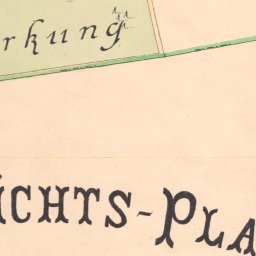 rkung
ICHTS-PLA